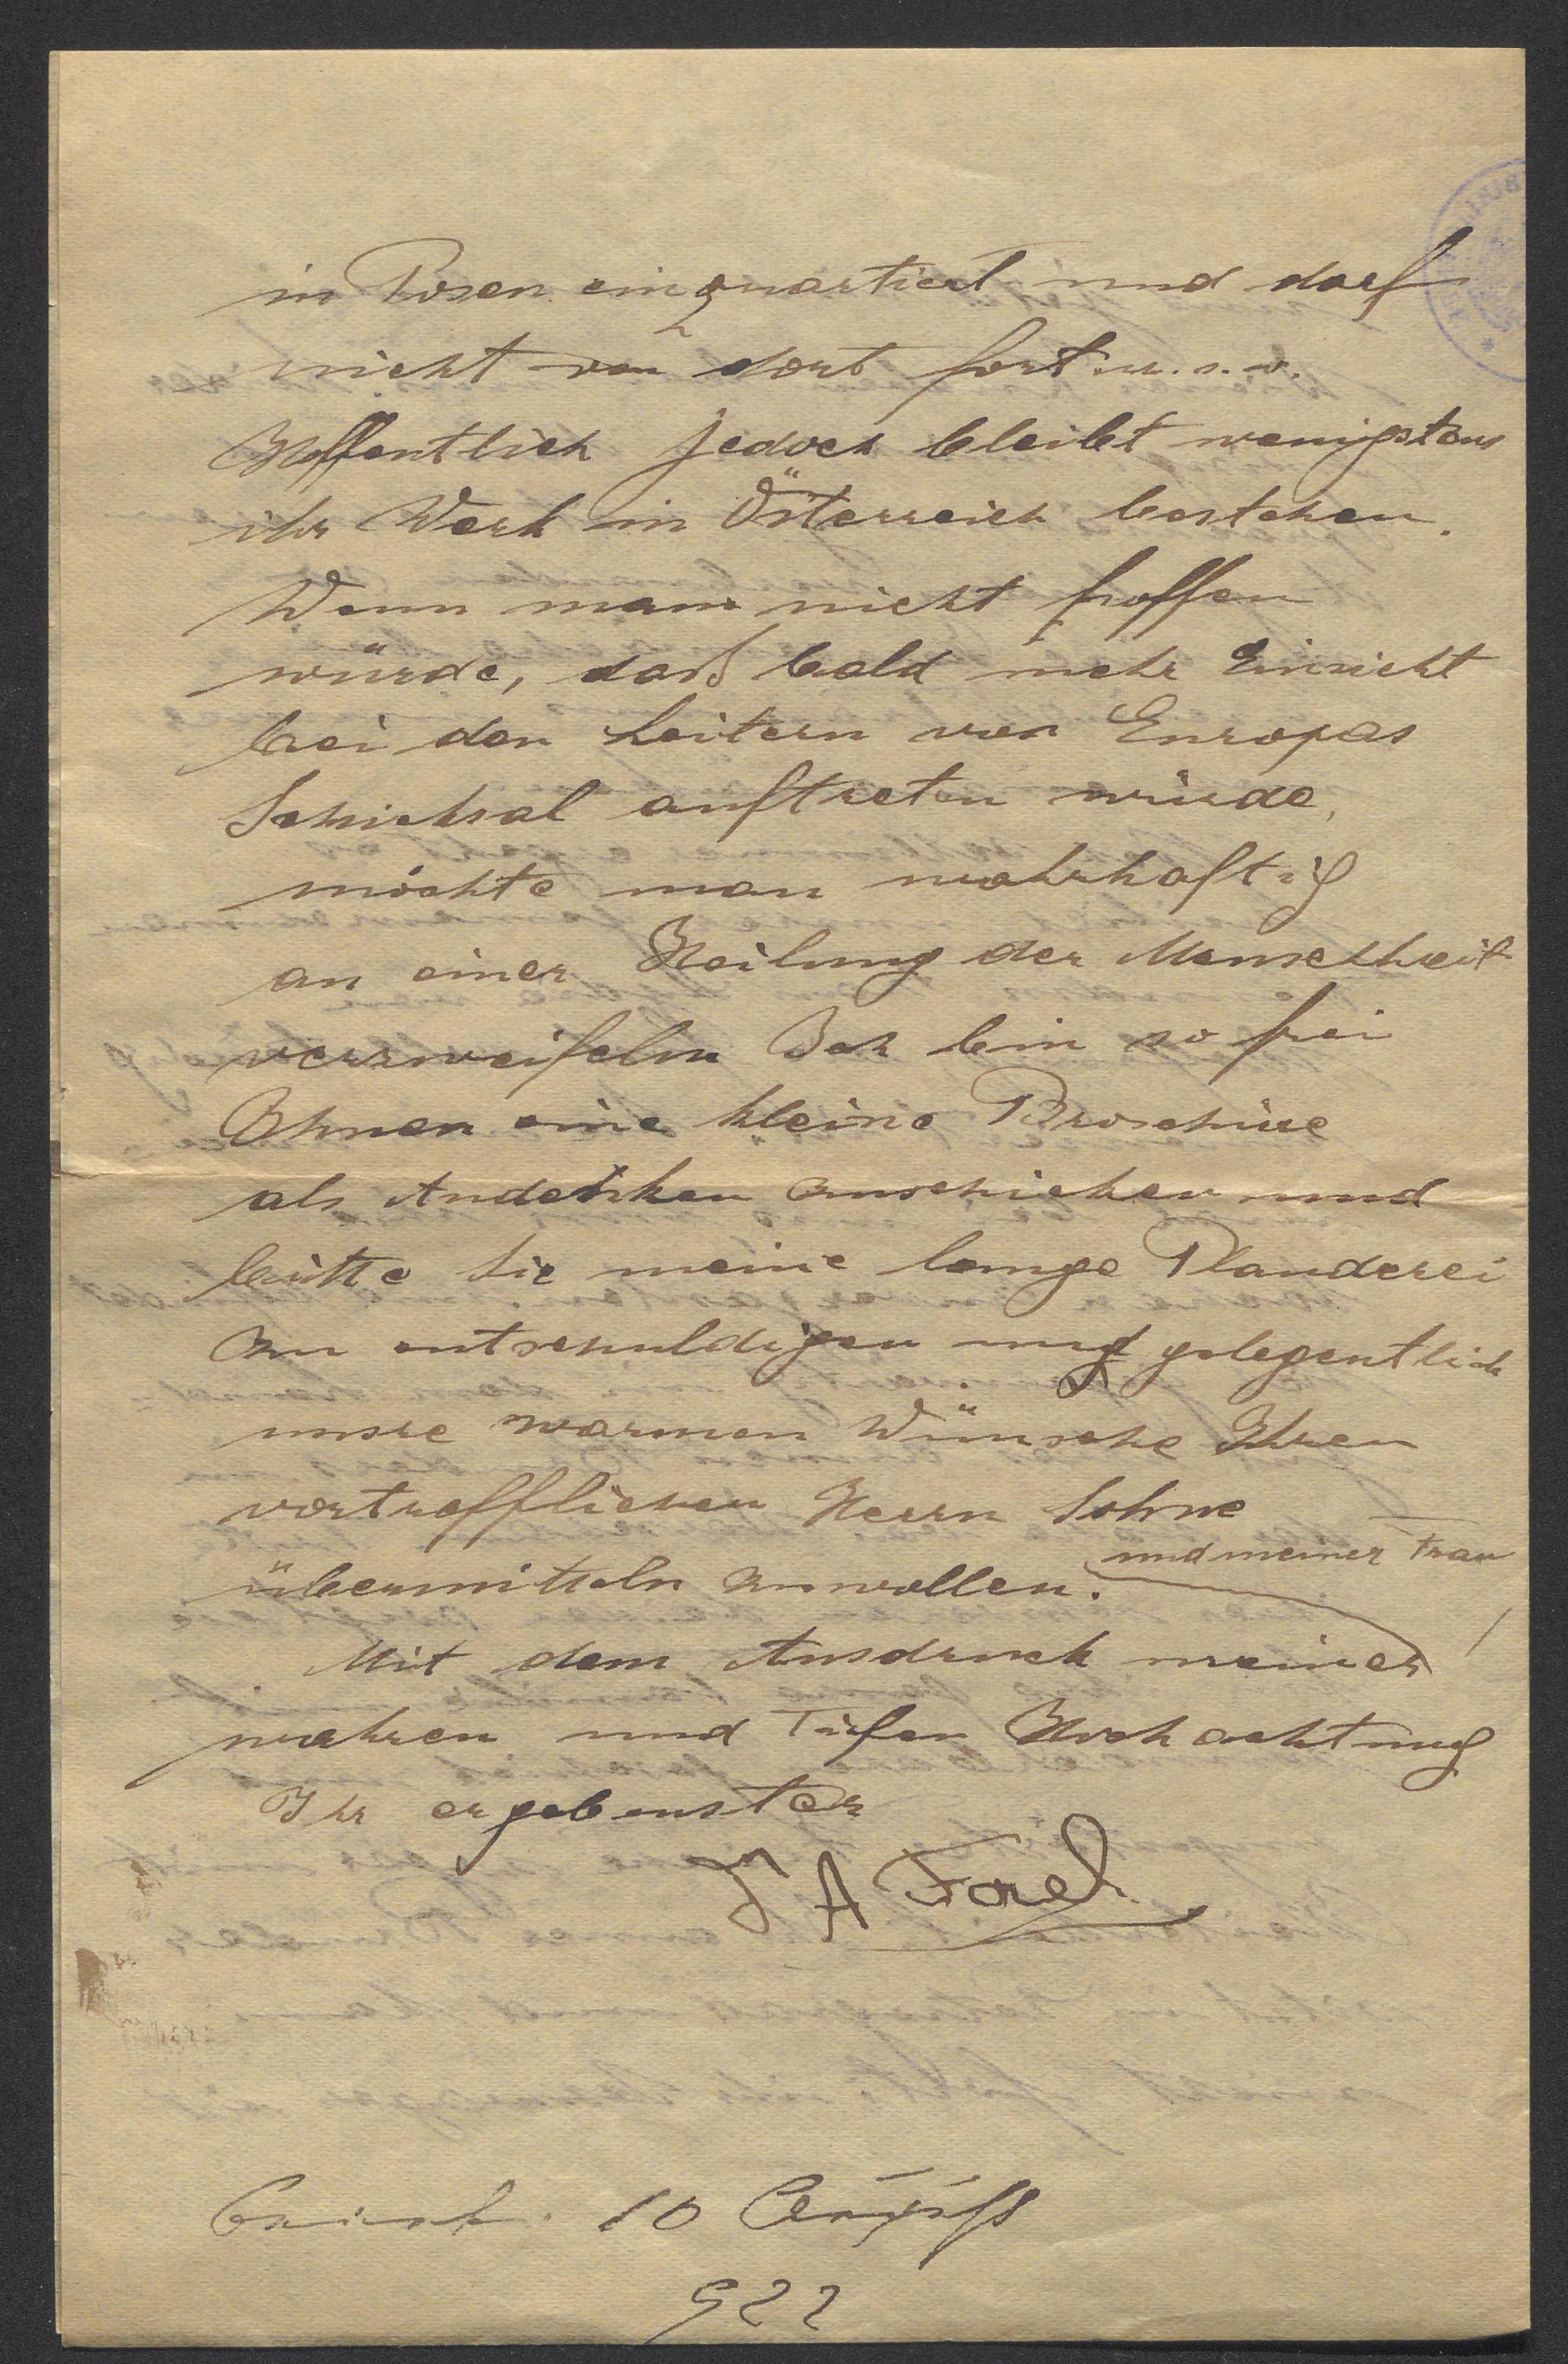 in Posen einquartiert und darf
nicht von dort fort u.s.w.
Hoffentlich jedoch bleibt wenigstens
ihr Werk in Österreich bestehen.
Wenn man nicht hoffen
würde, daß bald mehr Einsicht
bei den Leitern von Europas
Schicksal auftreten würde,
möchte man wahrhaftig
an einer Heilung der Menschheit
verzweifeln Ich bin so frei
Ihnen eine kleine Broschüre
als Andenken zuschicken und
bitte Sie meine lange Plauderei
zu entschuldigen und gelegentlich
unsre warmen Wünsche Ihren
vortrefflichen Herrn Sohne
übermitteln zu wollen.
und meiner Frau
Mit dem Ausdruck meiner
wahren und tiefen Hochachtung
Ihr ergebenster
A Forel
10
922